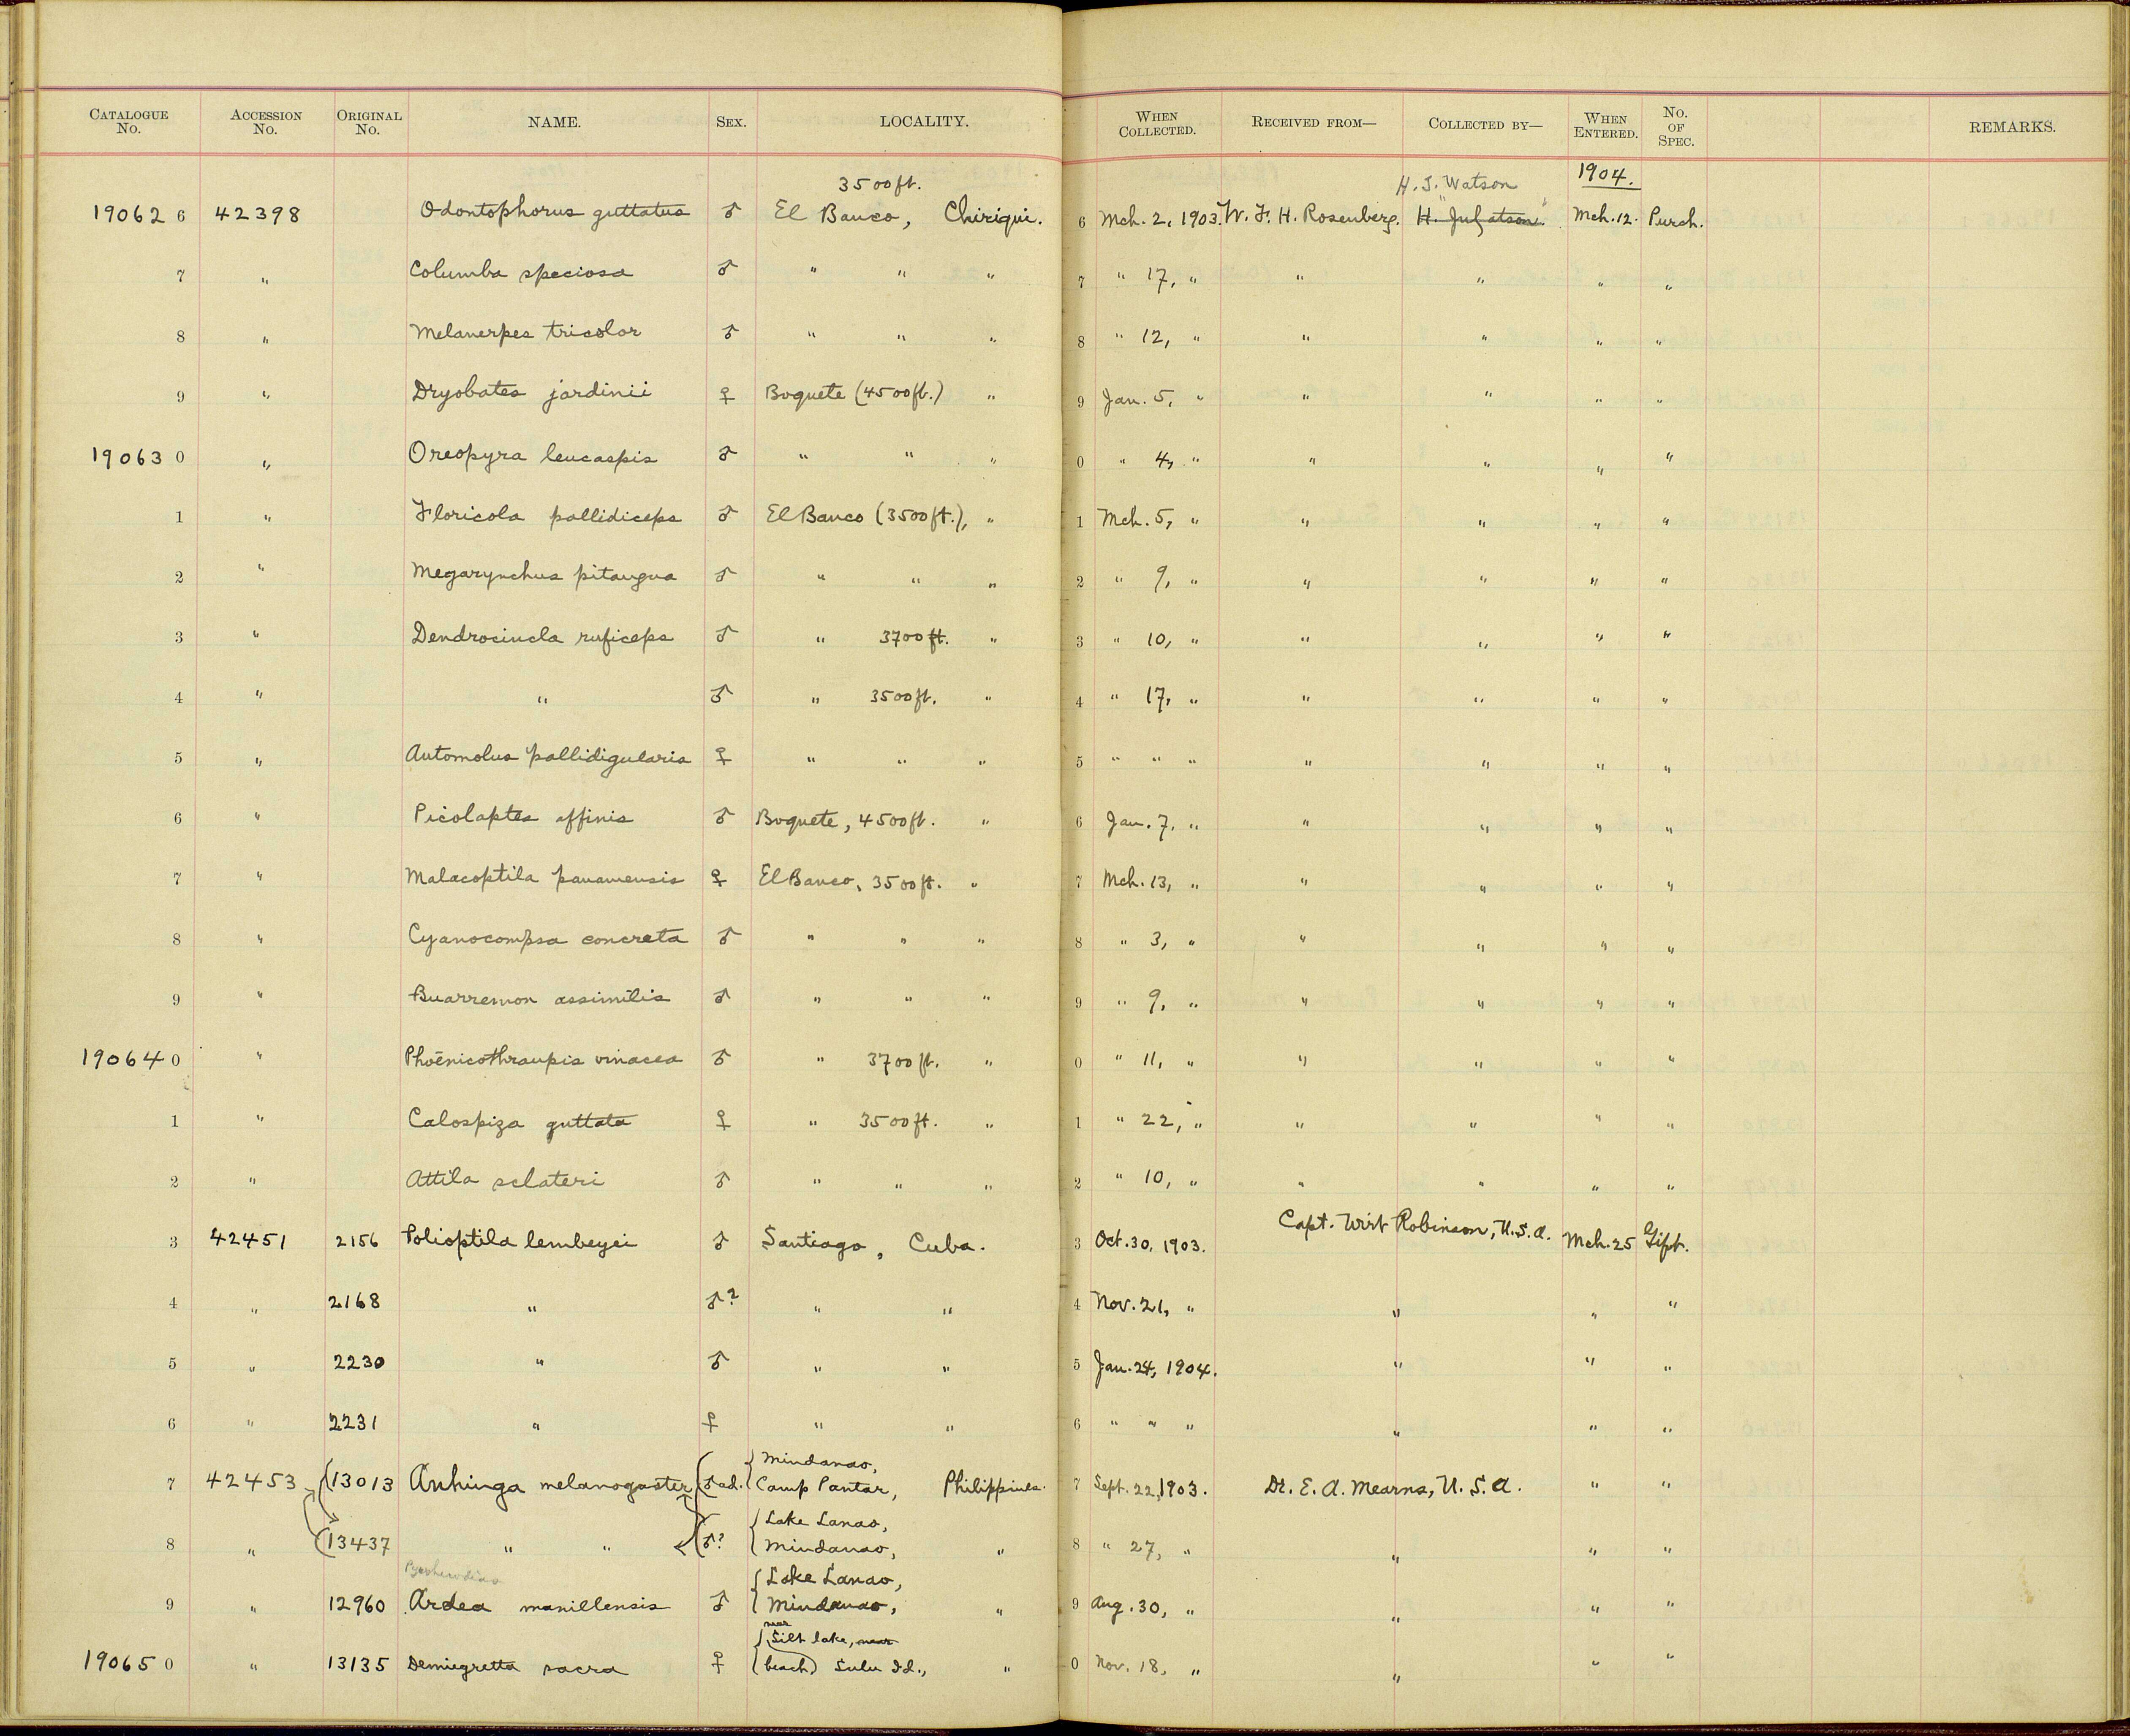 CATALOGUE No. ACCESSION No. ORIGINAL No. NAME. SEX. LOCALITY. WHEN COLLECTED. RECEIVED FROM— COLLECTED BY— WHEN ENTERED. No. OF SPEC. REMARKS.
3500ft. H. J. Watson 1904.
19062 6 42398 Odontophorus guttatus ♂ El Banco, Chiriqui. 6 Mch. 2, 1903. W. F. H. Rosenberg. Mch. 12. Purch.
7 " Columba speciosa ♂ " " " 7 " 17, " " " " "
8 " Melanerpes tricolor ♂ " " " 8 " 12, " " " " "
9 " Dryobates jardinii ♀ Boquete (4500ft.) " 9 Jan. 5, " " " " "
19063 0 " Oreopyra leucaspis ♂ " " " 0 " 4, " " " " "
1 " Floricola pallidiceps ♂ El Banco (3500ft.), " 1 Mch. 5, " " " " "
2 " Megarynchus pitangua ♂ " " " 2 " 9, " " " " "
3 " Dendrocincla ruficeps ♂ " 3700ft. " 3 " 10, " " " " "
4 " " ♂ " 3500ft. " 4 " 17, " " " " "
5 " Automolus pallidigularis ♀ " " " 5 " " " " " " "
6 " Picolaptes affinis ♂ Boquete, 4500ft. " 6 Jan. 7, " " " " "
7 " Malacoptila panamensis ♀ El Banco, 3500ft. " 7 Mch. 13, " " " " "
8 " Cyanocompsa concreta ♂ " " " 8 " 3, " " " " "
9 " Buarremon assimilis ♂ " " " 9 " 9, " " " " "
19064 0 " Phoenicothraupis vinacea ♂ " 3700ft. " 0 " 11, " " " " "
1 " Calospiza guttata ♀ " 3500ft. " 1 " 22, " " " " "
2 " Attila sclateri ♂ " " " 2 " 10, " " " " "
3 42451 2156 Polioptila lembeyei ♂ Santiago, Cuba. 3 Oct. 30, 1903. Capt. Wirt Robinson, U.S.A. Mch. 25 Gift.
4 " 2168 " ♂? " " 4 Nov. 21, " " " "
5 " 2230 " ♂ " " 5 Jan. 24, 1904. " " "
6 " 2231 " ♀ " " 6 " " " " " "
Mindanao,
7 42453 13013 Anhinga melanogaster ♂ad. Camp Pantar, Philippines. 7 Sept. 22, 1903. Dr. E. A. Mearns, U. S. A. " "
Lake Lanao,
8 " 13437 " " ♂? Mindanao, " 8 " 27, " " " "
Pyrrherodias Lake Lanao,
9 " 12960 Ardea manillensis ♂ Mindanao, " 9 Aug. 30, " " " "
near
Silt lake, near
19065 0 " 13135 Demiegretta sacra ♀ (beach) Sulu Id., " 0 Nov. 18, " " " "